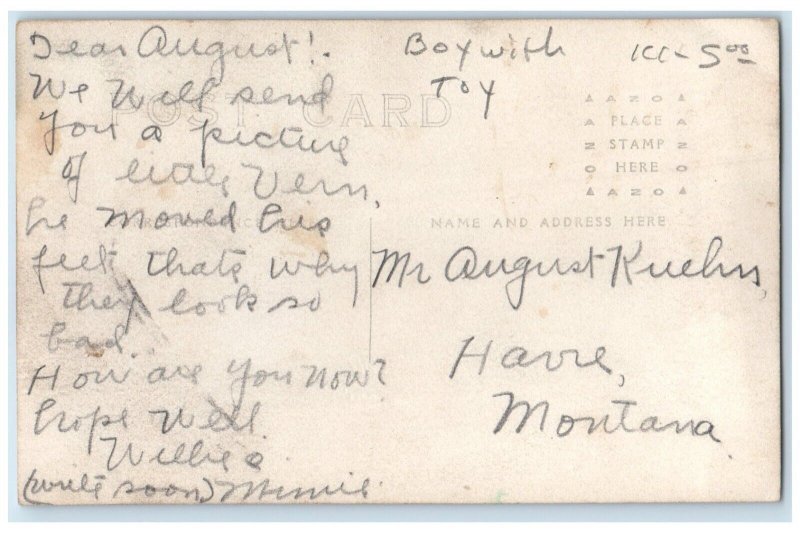 Dear August!.
We Will send
You a picture
of little Vern,
he moved his
feet thats why
they look so
bad.
How are you now?
hope Well.
Willie &
(write soon) Minnie.
Boy with
Toy
5.00
POST CARD
AZO
PLACE
STAMP
HERE
AZO
NAME AND ADDRESS HERE
Mr August Kuehn,
Havre,
Montana.